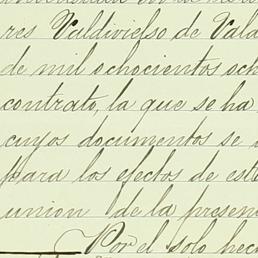 res Valdivielso de Vald
de mil ochocientos och
contrato, la que se ha
cuyos documentos se
para los efectos de este
union de la presen
Por el solo hec